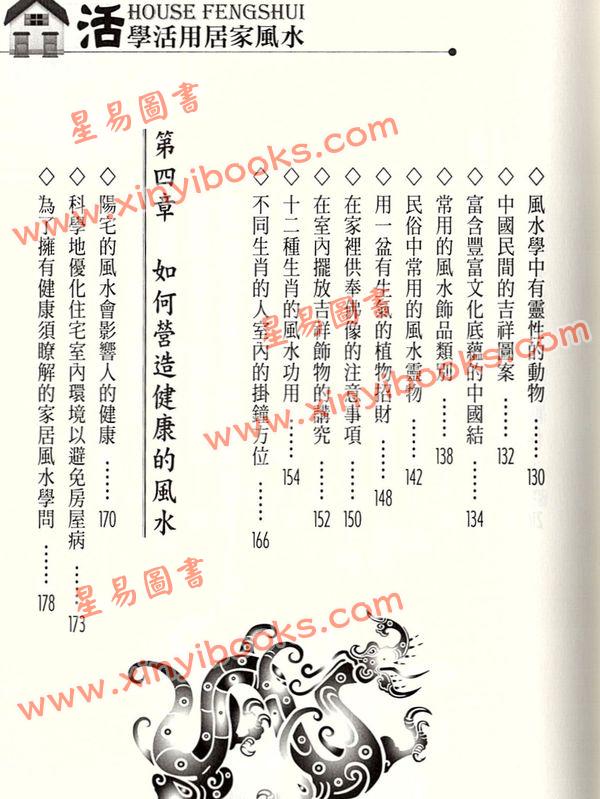 HOUSE FENGSHUI
活學活用居家風水
◇風水學中有靈性的動物……130
◇中國民間的吉祥圖案……132
◇富含豐富文化底蘊的中國結……134
◇常用的風水飾品類別……138
◇民俗中常用的風水靈物……142
◇用一盆有生氣的植物招財……148
◇在家裡供奉佛像的注意事項……150
◇在室內擺放吉祥飾物的講究……152
◇十二種生肖的風水功用……154
◇不同生肖的人室內的掛鐘方位……166
第四章 如何營造健康的風水
◇陽宅的風水會影響人的健康……170
◇科學地優化住宅室內環境以避免房屋病……173
◇為了擁有健康須瞭解的家居風水學問……178
星易圖書
www.xinyibooks.com
星易圖書
www.xinyibooks.com
星易圖書
www.xinyibooks.com